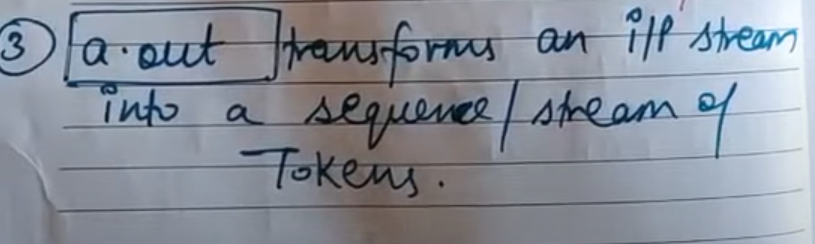 ③ a.out transforms an i/p stream
into a sequence/stream of
Tokens.